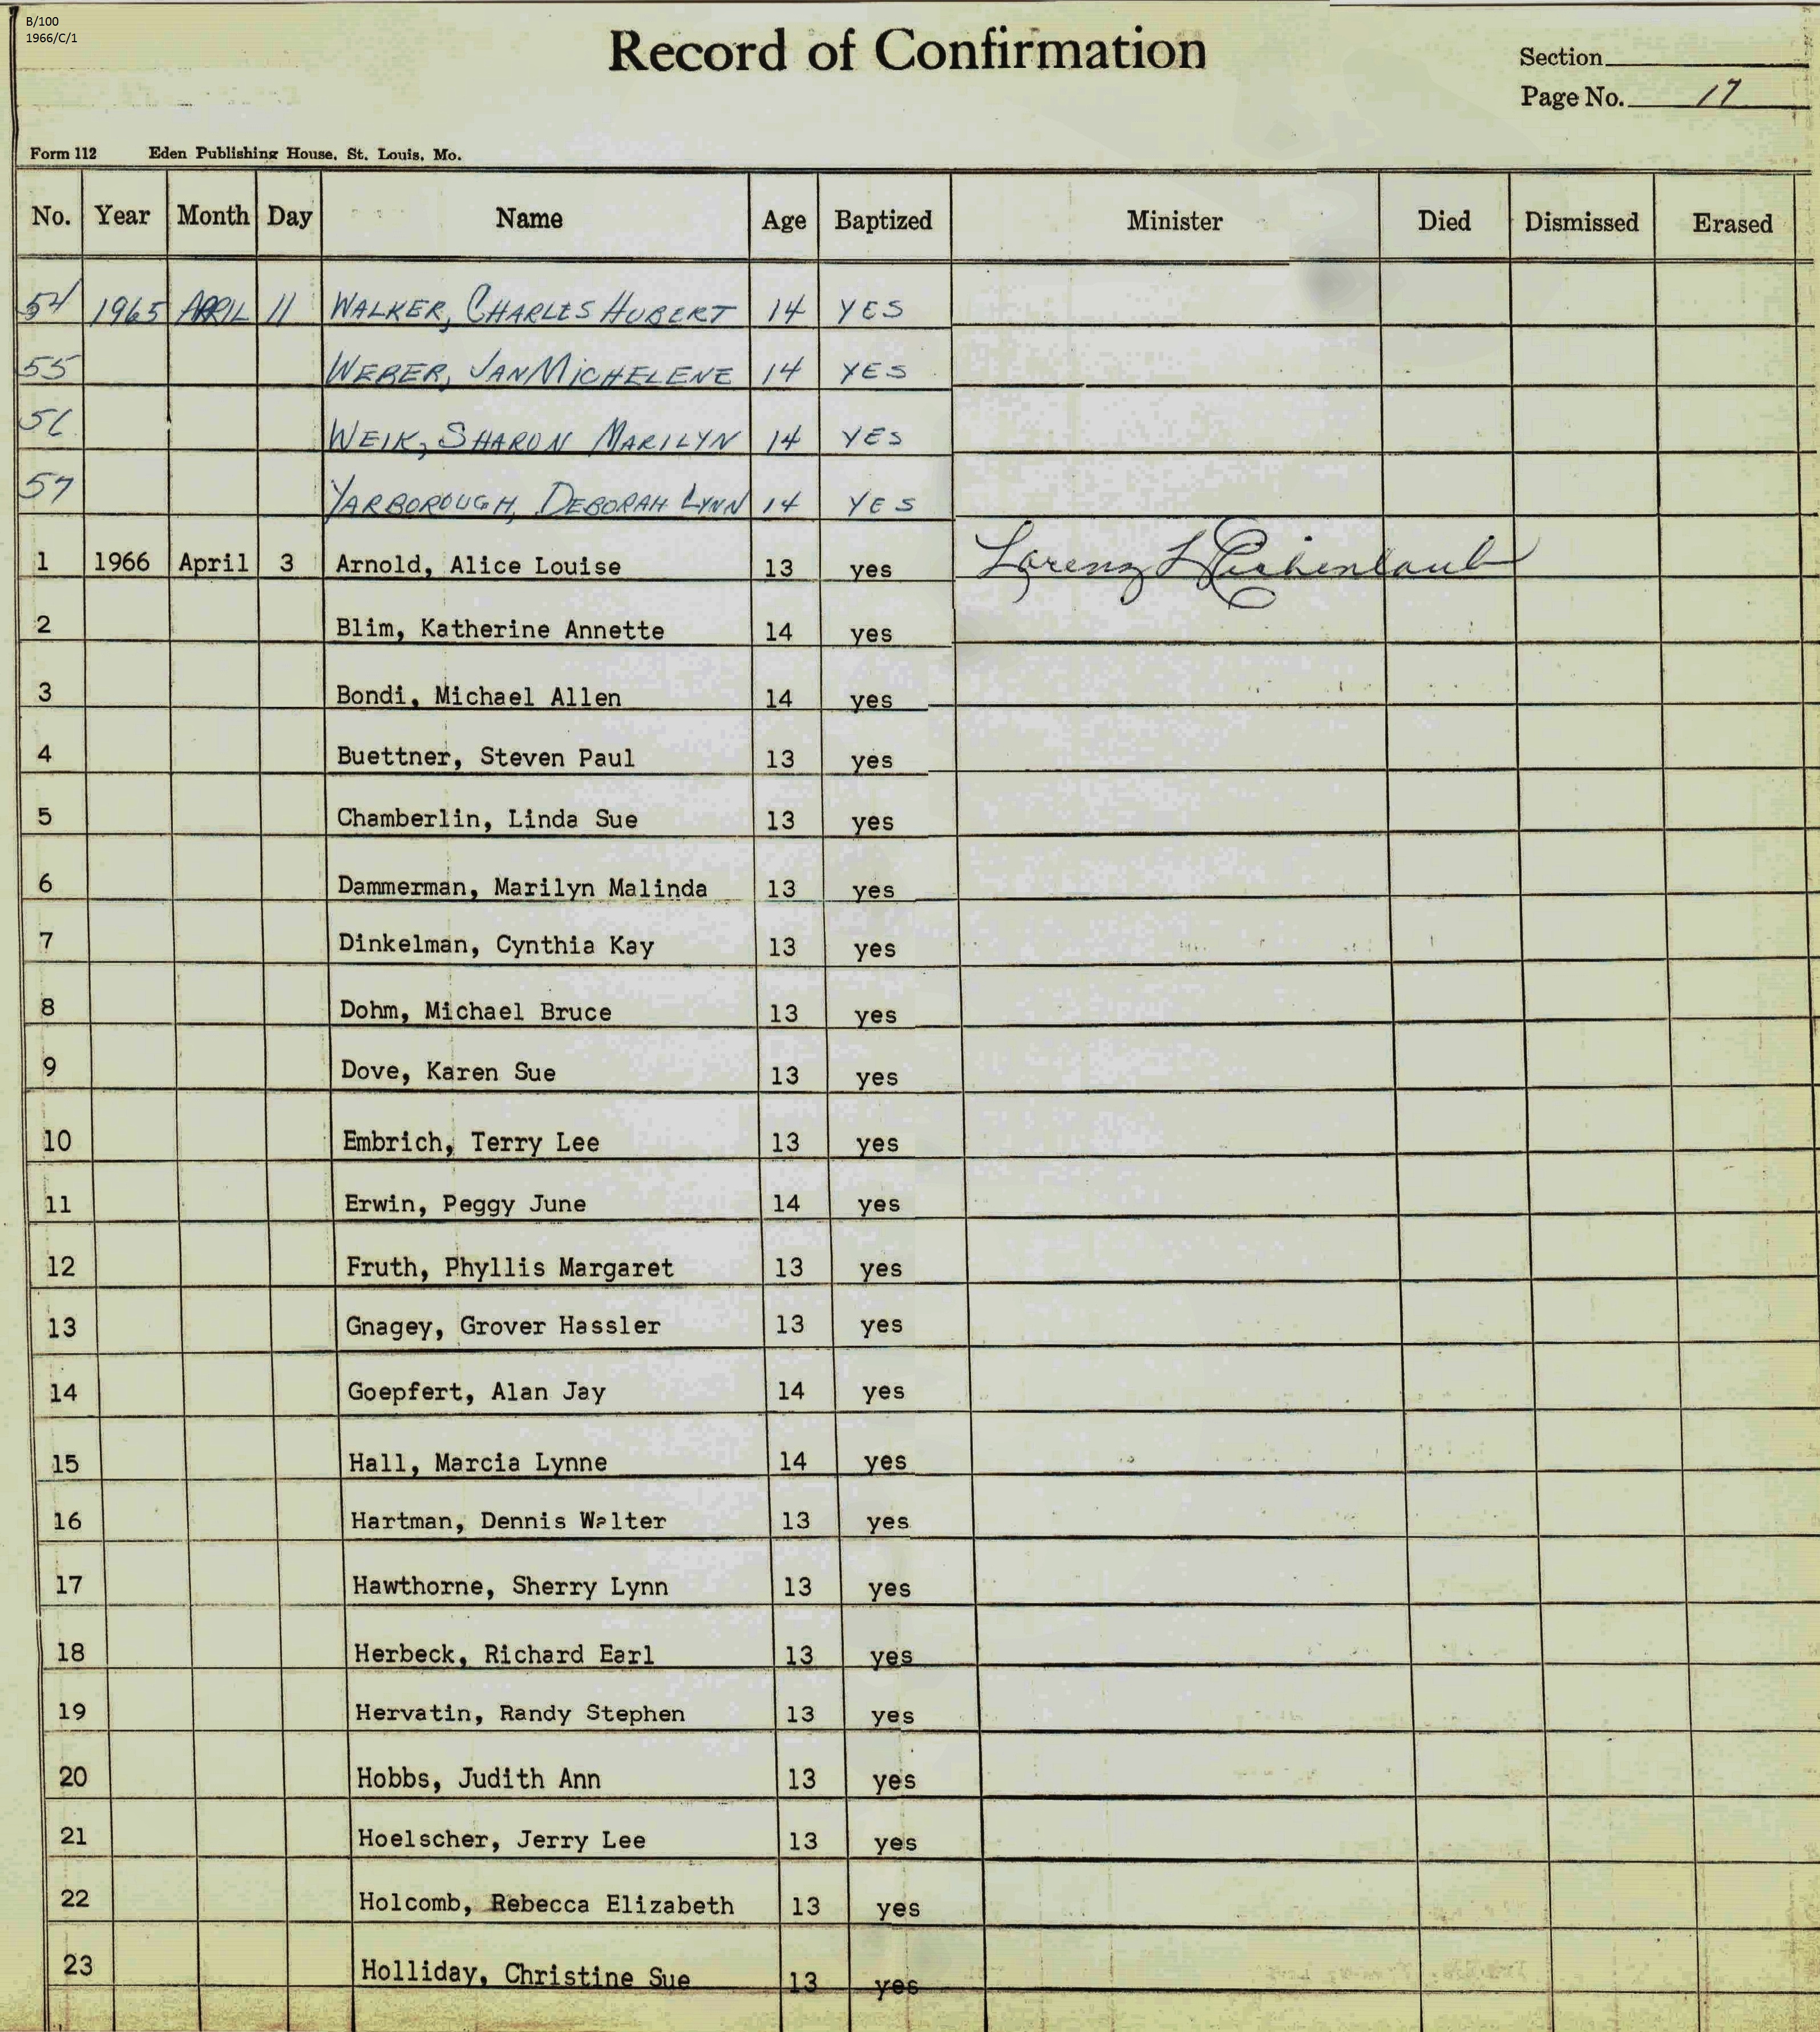 B/100
1966/C/1
Record of Confirmation
Section
Page No. 17
Form 112 Eden Publishing House, St. Louis, Mo.
No. Year Month Day Name Age Baptized Minister Died Dismissed Erased
54 1965 APRIL 11 WALKER, CHARLES HUBERT 14 YES
55 WEBER, JAN MICHELENE 14 YES
56 WEIK, SHARON MARILYN 14 YES
57 YARBOROUGH, DEBORAH LYNN 14 YES
1 1966 April 3 Arnold, Alice Louise 13 yes Lorenz L Eichenlaub
2 Blim, Katherine Annette 14 yes
3 Bondi, Michael Allen 14 yes
4 Buettner, Steven Paul 13 yes
5 Chamberlin, Linda Sue 13 yes
6 Dammerman, Marilyn Malinda 13 yes
7 Dinkelman, Cynthia Kay 13 yes
8 Dohm, Michael Bruce 13 yes
9 Dove, Karen Sue 13 yes
10 Embrich, Terry Lee 13 yes
11 Erwin, Peggy June 14 yes
12 Fruth, Phyllis Margaret 13 yes
13 Gnagey, Grover Hassler 13 yes
14 Goepfert, Alan Jay 14 yes
15 Hall, Marcia Lynne 14 yes
16 Hartman, Dennis Walter 13 yes
17 Hawthorne, Sherry Lynn 13 yes
18 Herbeck, Richard Earl 13 yes
19 Hervatin, Randy Stephen 13 yes
20 Hobbs, Judith Ann 13 yes
21 Hoelscher, Jerry Lee 13 yes
22 Holcomb, Rebecca Elizabeth 13 yes
23 Holliday, Christine Sue 13 yes